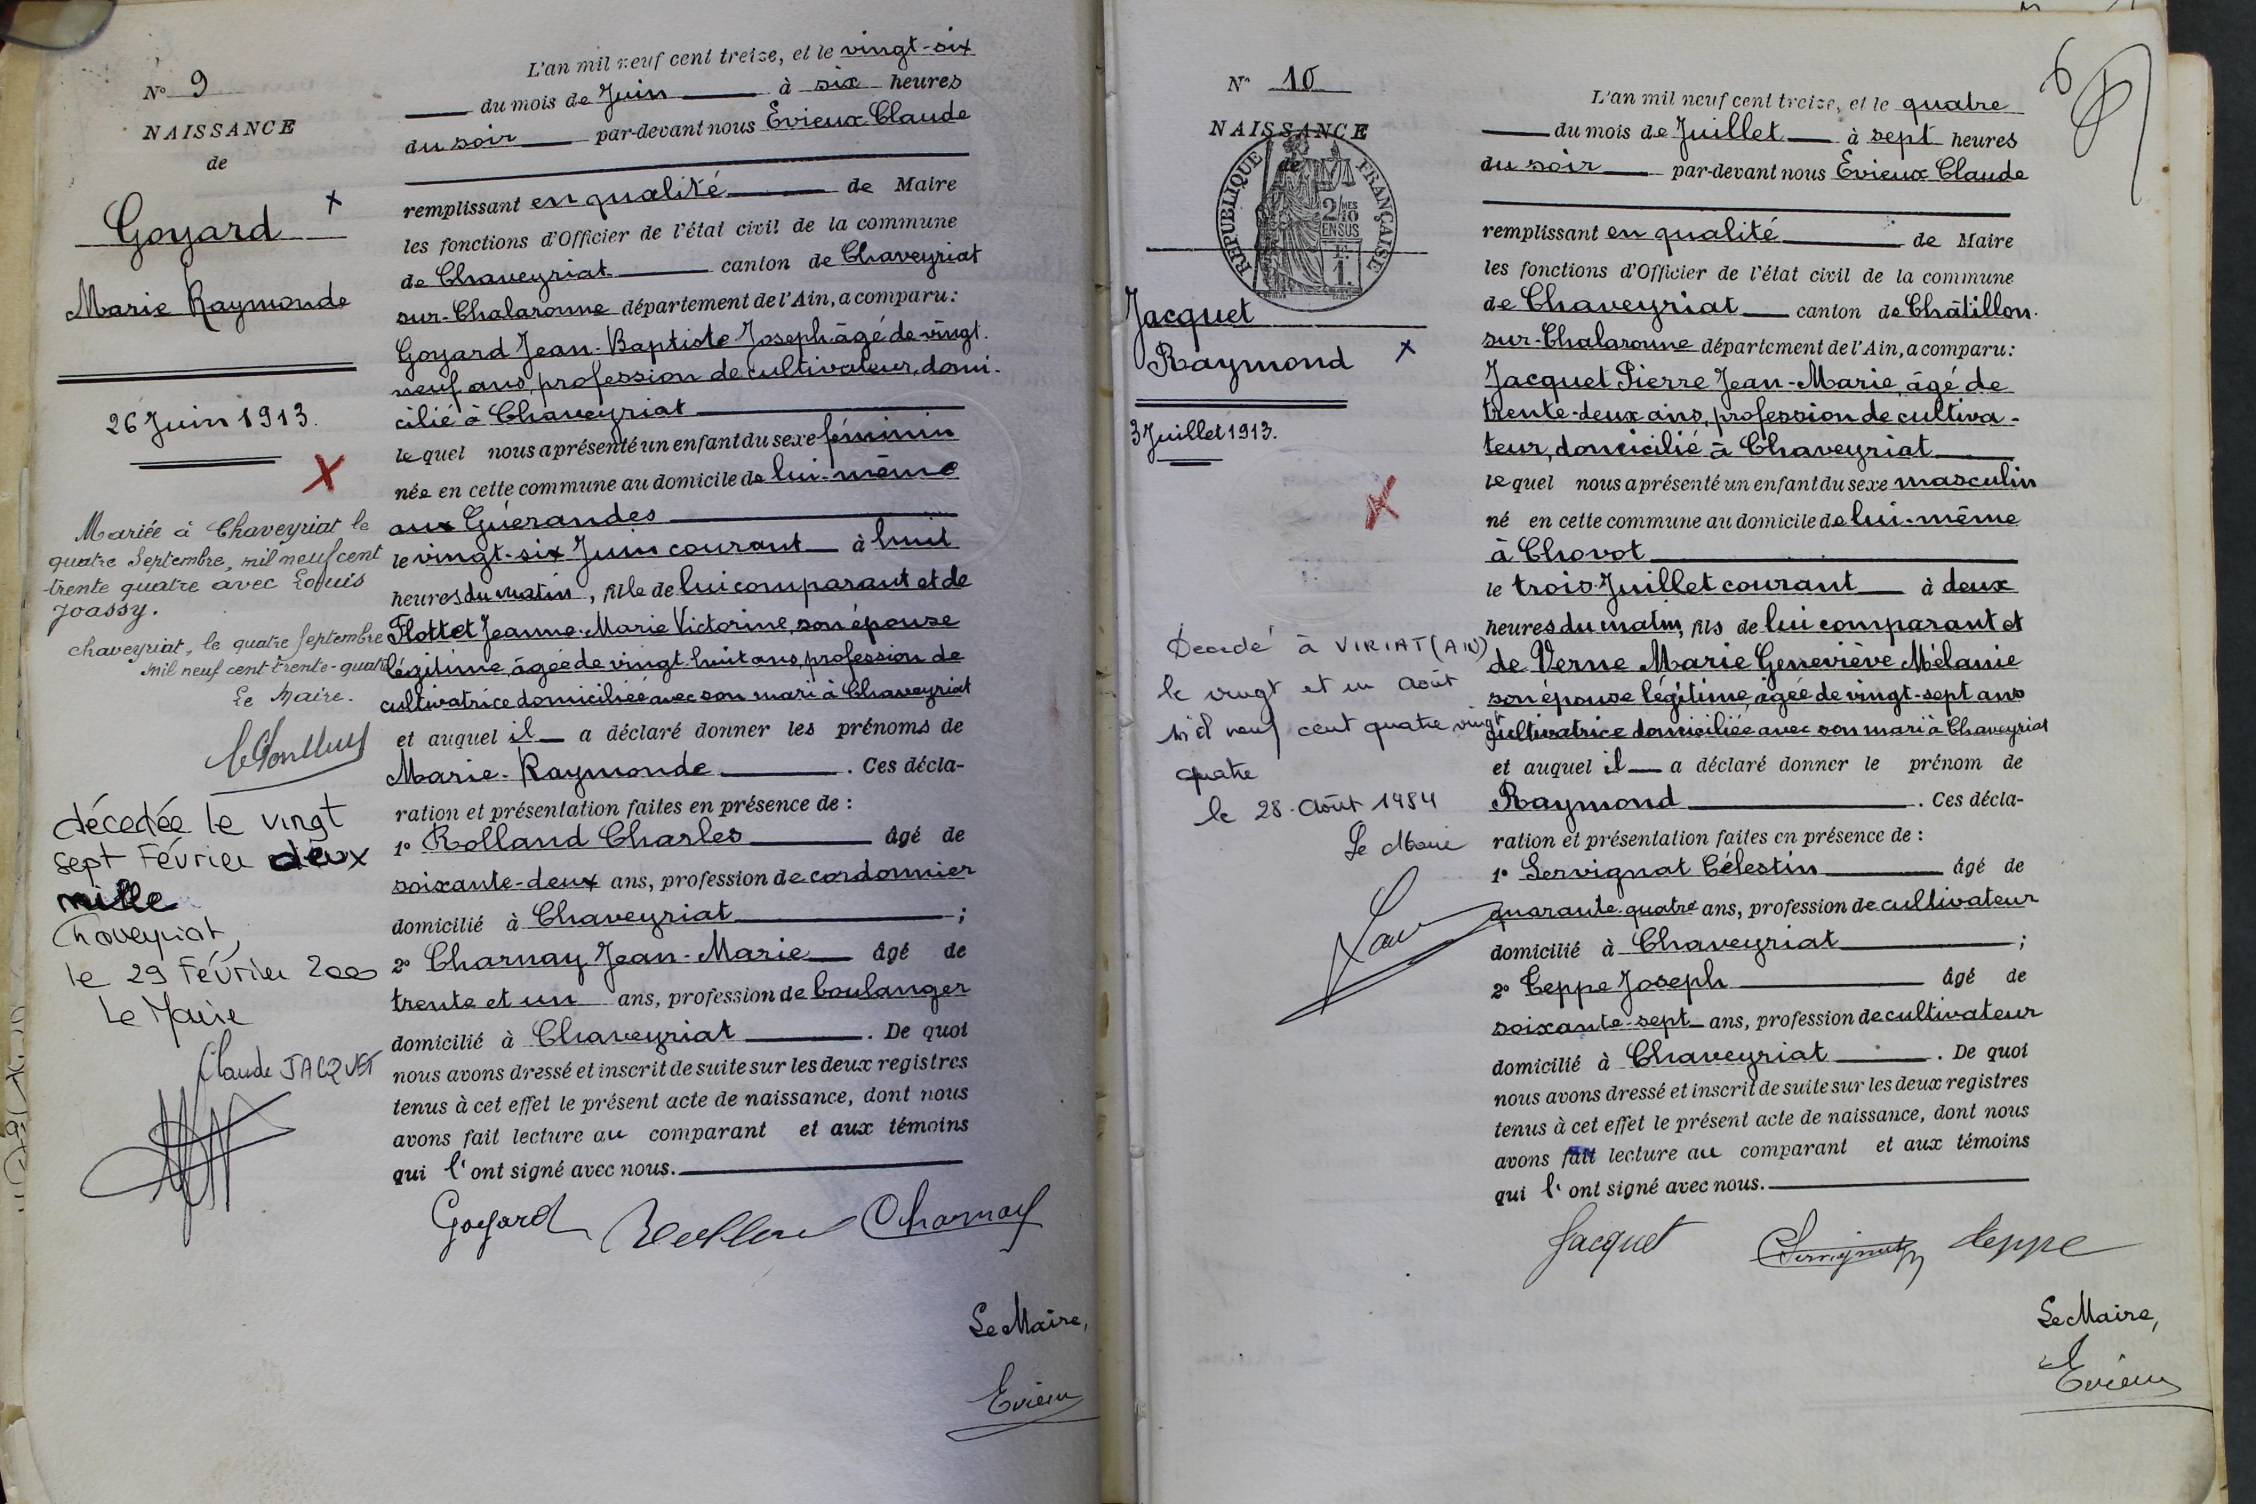 N° 9
NAISSANCE
de
Goyard
Marie Raymonde
26 Juin 1913.
Mariée à Chaveyriat le
quatre Septembre, mil neuf cent
trente quatre avec Louis
Joassy.
Chaveyriat, le quatre Septembre
mil neuf cent trente-quatre
Le Maire.
décedée le vingt
sept Février deux
mille
Chaveyriat,
le 29 Février 2000
Le Maire
Claude JACQUET
L'an mil neuf cent treize, et le vingt-six
du mois de Juin à six heures
du soir par-devant nous Evieux Claude
remplissant en qualité de Maire
les fonctions d'Officier de l'état civil de la commune
de Chaveyriat canton de Chaveyriat
sur-Chalaronne département de l'Ain, a comparu:
Goyard Jean-Baptiste Joseph âgé de vingt-
neuf ans, profession de cultivateur, domi-
cilié à Chaveyriat
lequel nous a présenté un enfant du sexe féminin
née en cette commune au domicile de lui-même
aux Guérandes
le vingt-six Juin courant à huit
heures du matin, fille de lui comparant et de
Flottet Jeanne-Marie Victorine, son épouse
légitime, âgée de vingt-huit ans, profession de
cultivatrice domiciliée avec son mari à Chaveyriat
et auquel il a déclaré donner les prénoms de
Marie-Raymonde. Ces décla-
ration et présentation faites en présence de :
1° Rolland Charles âgé de
soixante-deux ans, profession de cordonnier
domicilié à Chaveyriat ;
2° Charnay Jean-Marie âgé de
trente et un ans, profession de boulanger
domicilié à Chaveyriat. De quoi
nous avons dressé et inscrit de suite sur les deux registres
tenus à cet effet le présent acte de naissance, dont nous
avons fait lecture au comparant et aux témoins
qui l'ont signé avec nous.
Goyard Rolland Charnay
Le Maire,
Evieux
6
N° 10
NAISSANCE
de
RÉPUBLIQUE FRANÇAISE
2/MES
10
EN SUS
F.
1.
Jacquet
Raymond
3 Juillet 1913.
Décédé à VIRIAT (AIN)
le vingt et un Août
mil neuf cent quatre vingt
quatre
le 28 Août 1984
Le Maire
L'an mil neuf cent treize, et le quatre
du mois de Juillet à sept heures
du soir par-devant nous Evieux Claude
remplissant en qualité de Maire
les fonctions d'Officier de l'état civil de la commune
de Chaveyriat canton de Châtillon-
sur-Chalaronne département de l'Ain, a comparu:
Jacquet Pierre Jean-Marie, âgé de
trente-deux ans, profession de cultiva-
teur, domicilié à Chaveyriat
lequel nous a présenté un enfant du sexe masculin
né en cette commune au domicile de lui-même
à Chovot
le trois Juillet courant à deux
heures du matin, fils de lui comparant et
de Verne Marie Geneviève Mélanie
son épouse légitime, âgée de vingt-sept ans
cultivatrice domiciliée avec son mari à Chaveyriat
et auquel il a déclaré donner le prénom de
Raymond. Ces décla-
ration et présentation faites en présence de :
1° Servignat Célestin âgé de
quarante-quatre ans, profession de cultivateur
domicilié à Chaveyriat ;
2° Teppe Joseph âgé de
soixante-sept ans, profession de cultivateur
domicilié à Chaveyriat. De quoi
nous avons dressé et inscrit de suite sur les deux registres
tenus à cet effet le présent acte de naissance, dont nous
avons fait lecture au comparant et aux témoins
qui l'ont signé avec nous.
Jacquet Servignat Teppe
Le Maire,
Evieux